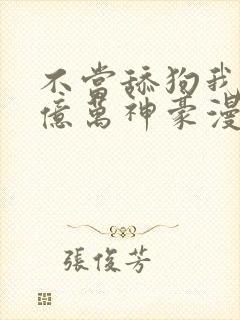 不當舔狗我
億萬神豪漫
張俊芳